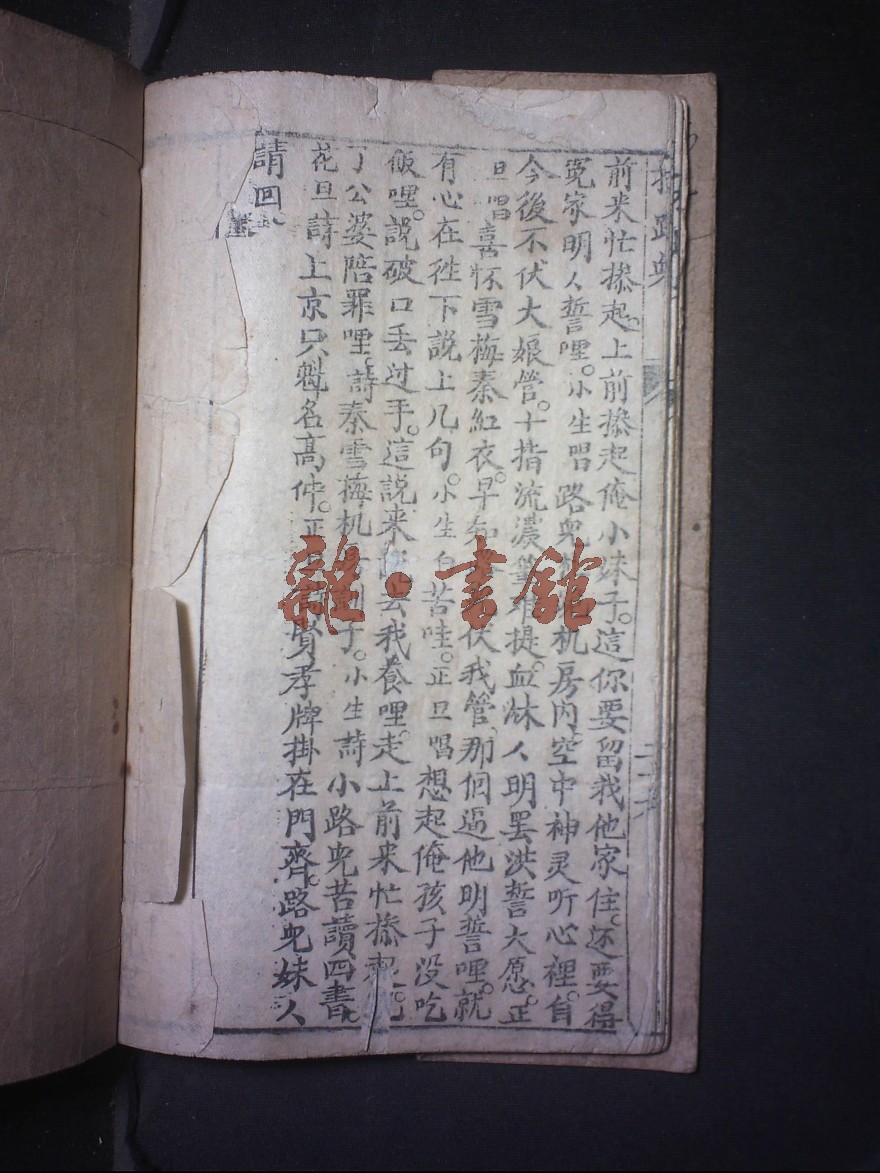 前来忙搽起上前搽起俺小妹子。這你要留我他家住。还要得
冤家明人誓哩。小生唱路皃 机房內空中神灵听心裡。自
今後不伏大娘管。十指流濃 提。血冧人明罢洪誓大愿。正
旦唱喜怀雪梅秦紅衣。早知 伏我管那個逼他明誓哩。就
有心在徃下説上几句。小生白苦哇。正旦唱想起俺孩子没吃
飯哩。説破口丢过手。這説来 去我養哩。走上前来忙搽起。
丁公婆陪罪哩。詩秦雪梅机 子。小生詩小路皃苦讀四書。
花旦詩上京只 名高仲。正 賢孝牌掛在門齊。路皃妹人
請回
雜·書館